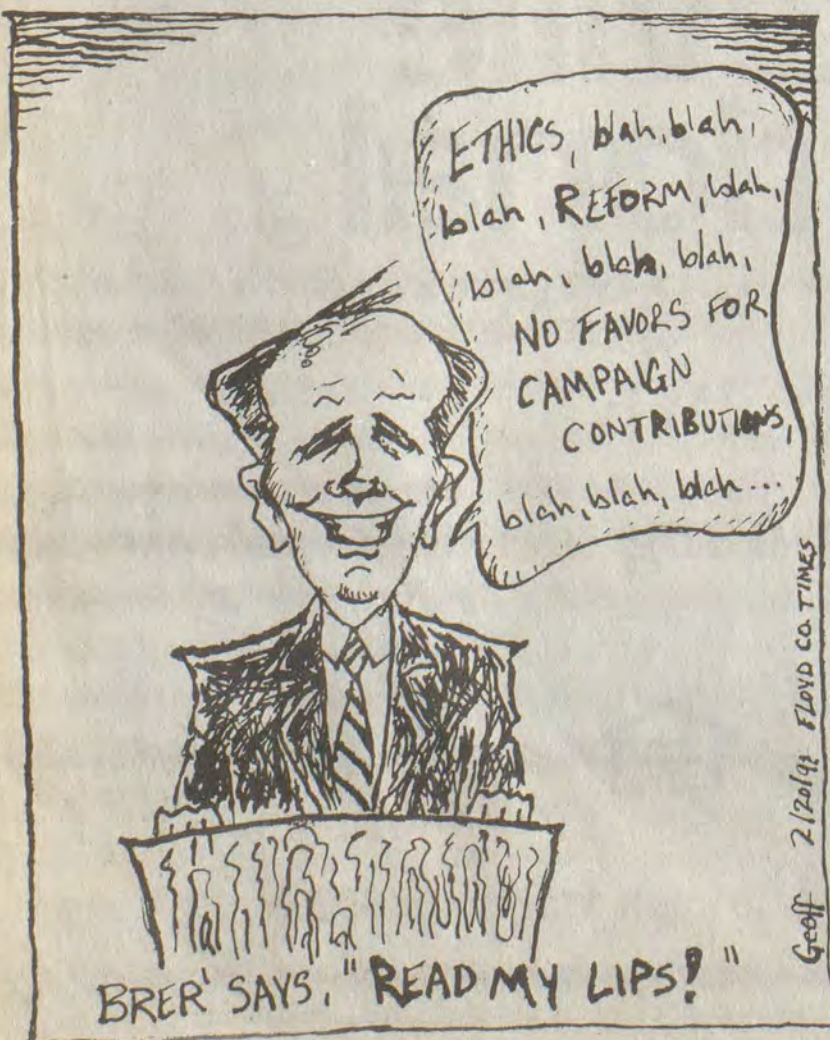 ETHICS, blah, blah,
blah, REFORM, blah,
blah, blah, blah,
NO FAVORS FOR
CAMPAIGN
CONTRIBUTIONS,
blah, blah, blah...
BRER' SAYS, "READ MY LIPS!"
Geoff 2/20/92 FLOYD CO. TIMES